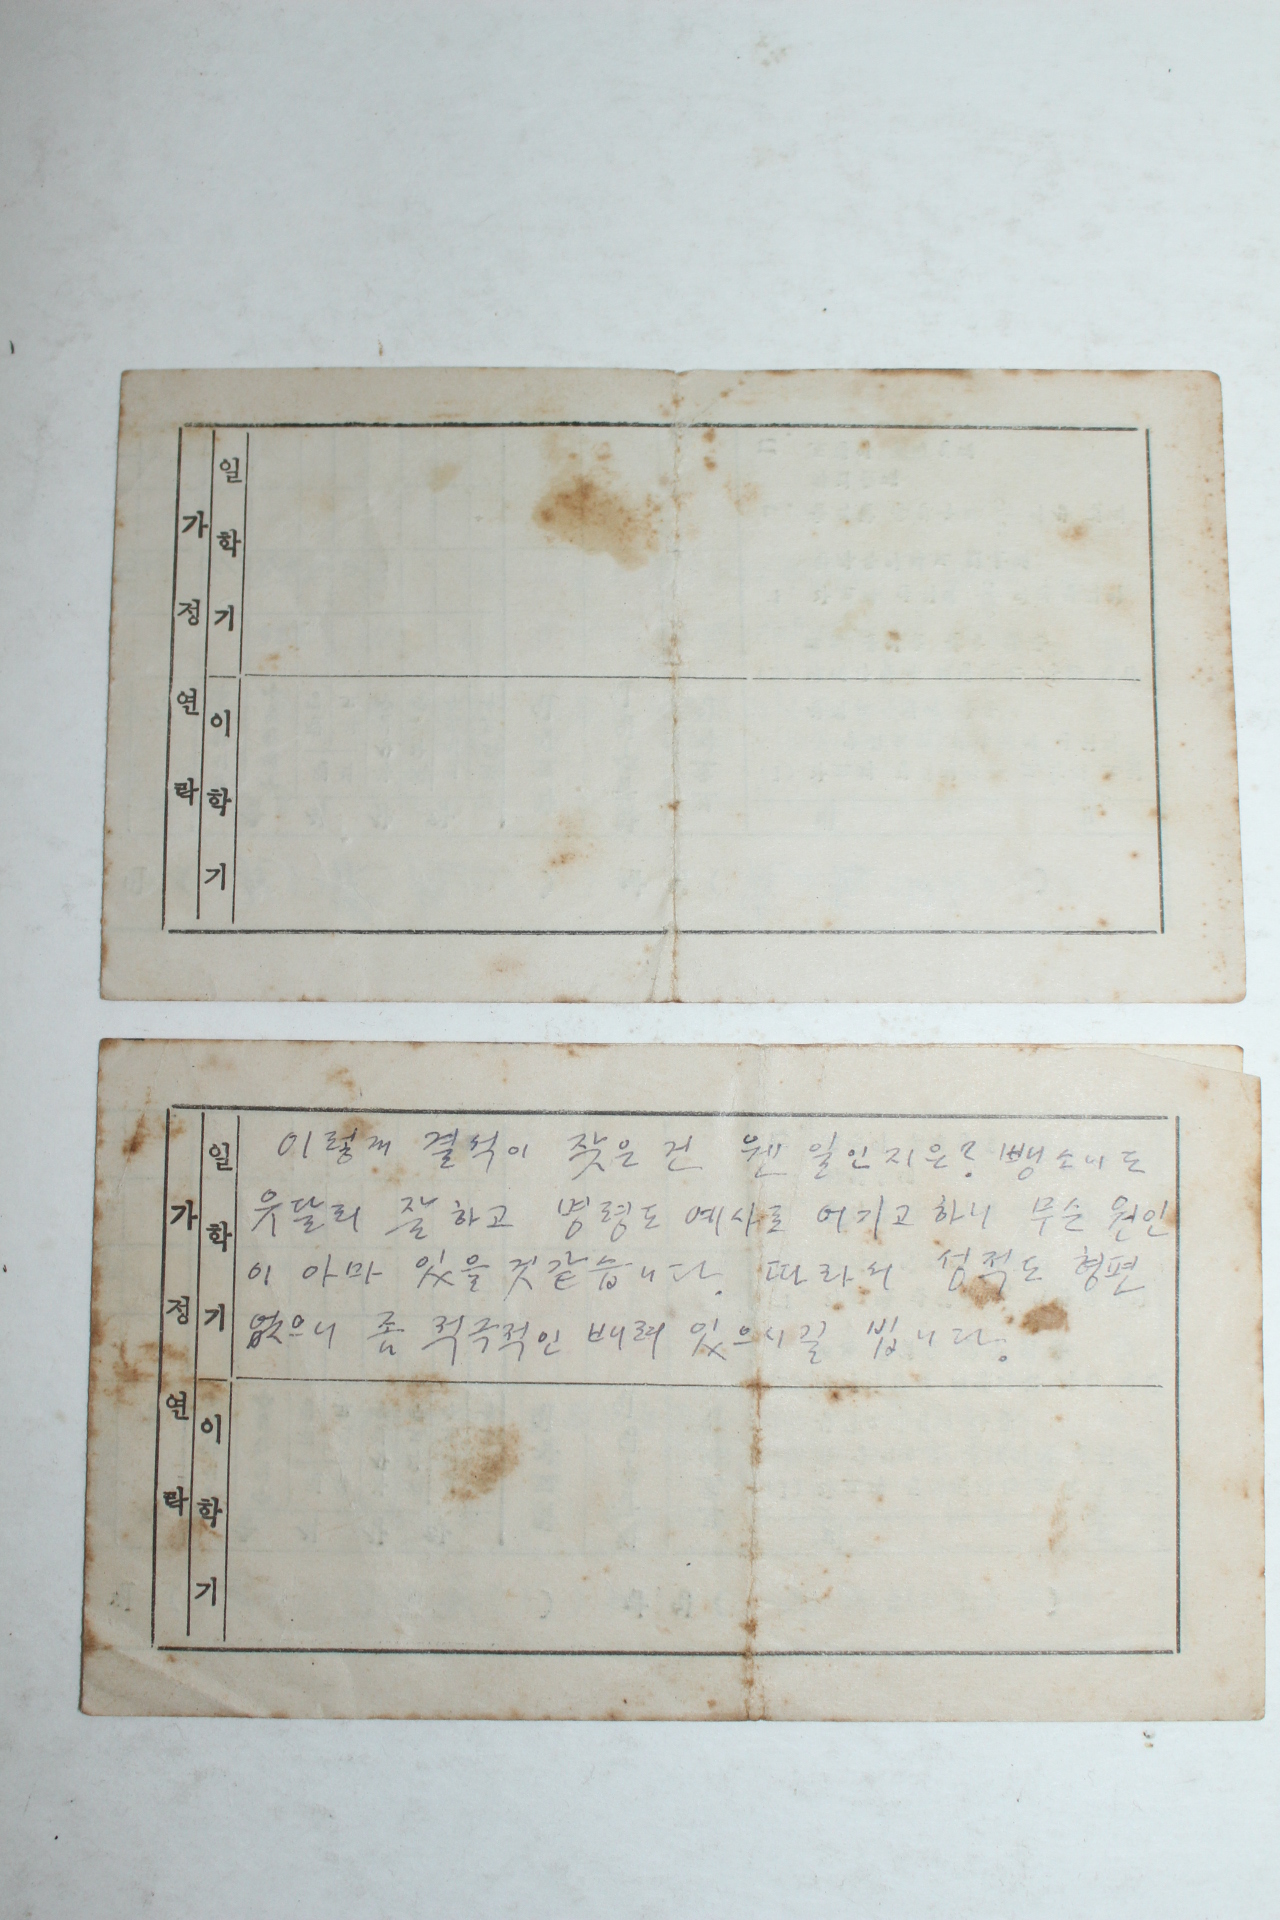 가정연락
일학기
이학기
가정연락
일학기
이렇게 결석이 잦은 건 웬 일인지은? 뺑소니도
유달리 잘하고 명령도 예사로 어기고 하니 무슨 원인
이 아마 있을 것 같습니다. 따라서 성적도 형편
없으니 좀 적극적인 배려 있으시길 빕니다.
이학기